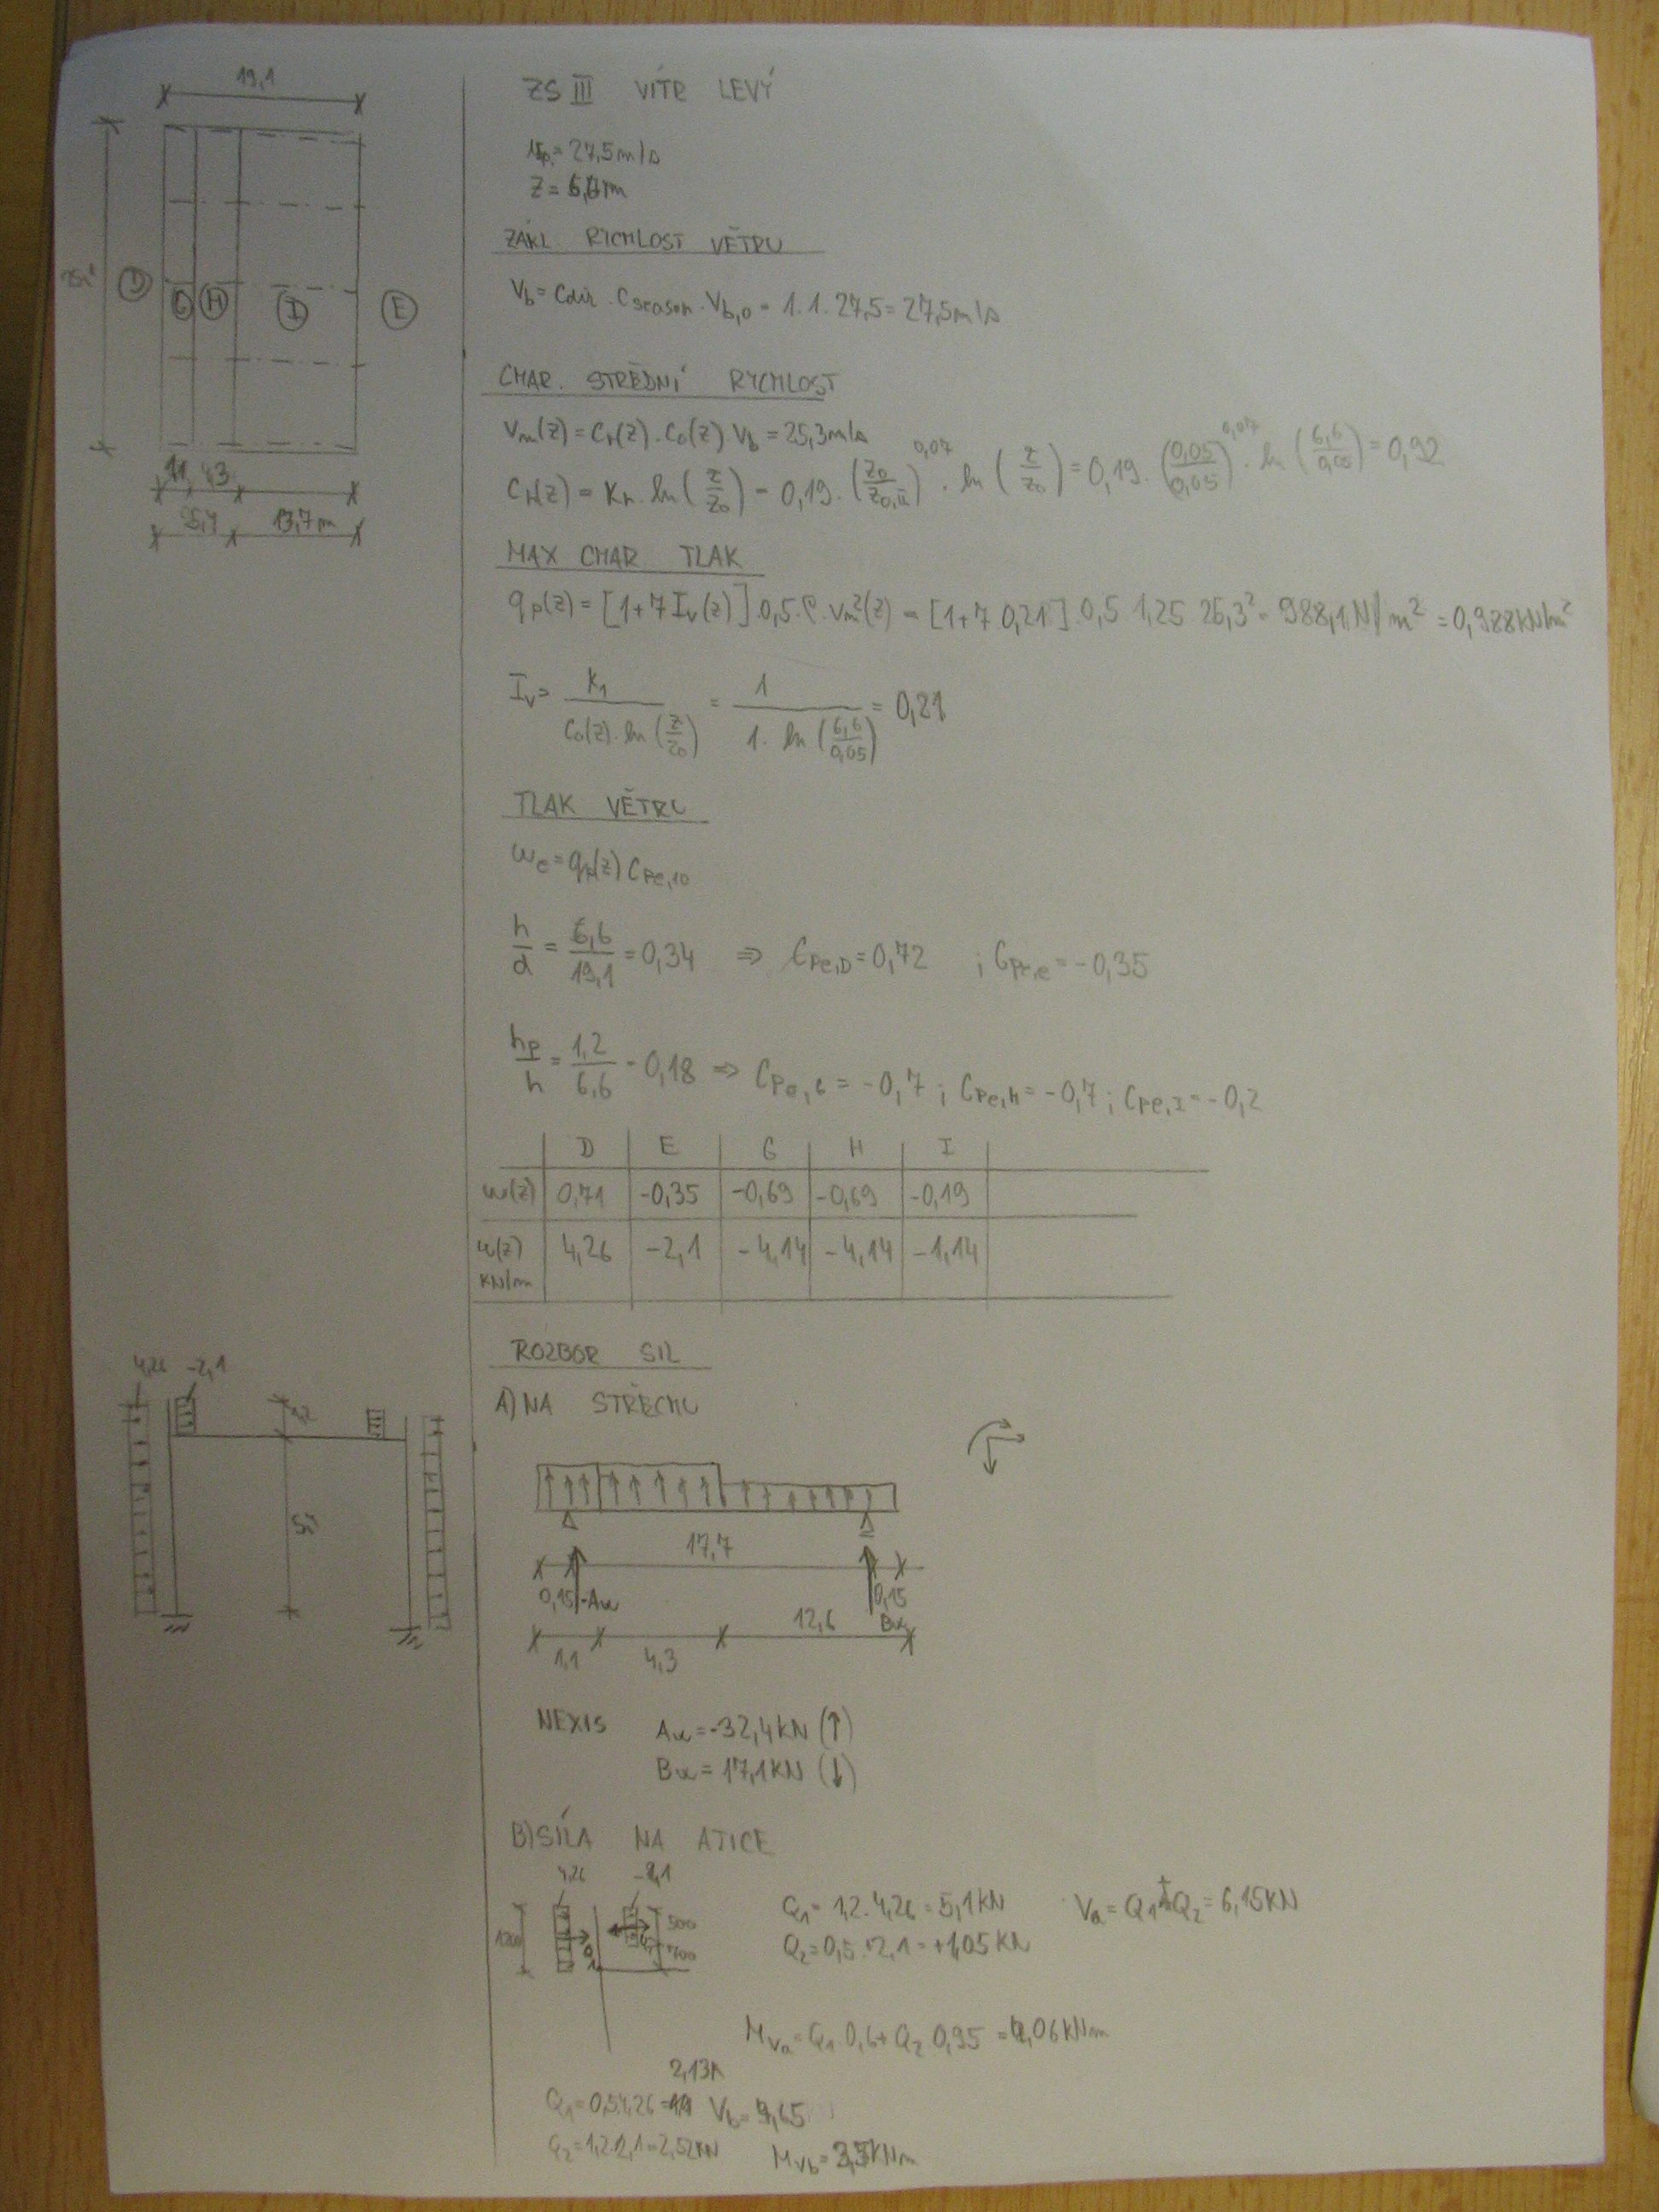 19,1
D
G
H
I
E
1,1 4,3
5,4 13,7m
ZS III VÍTR LEVÝ
= 27,5m/s
Z = 6,6m
ZÁKL. RYCHLOST VĚTRU
Vb = Cdir . Cseason . Vb,0 = 1.1.27,5 = 27,5m/s
CHAR. STŘEDNÍ RYCHLOST
Vm(z) = Cr(z) . Co(z) . Vb = 25,3m/s
Cr(z) = Kr . ln (z/z0) = 0,19 . (z0/z0,II)^0,07 . ln (z/z0) = 0,19 . (0,05/0,05)^0,07 . ln (6,6/0,05) = 0,92
MAX CHAR TLAK
qp(z) = [1+7 Iv(z)] .0,5.ρ.vm²(z) = [1+7 0,21] .0,5 1,25 25,3² = 988,1N/m² = 0,988KN/m²
Iv = K1 / (Co(z) . ln (z/z0)) = 1 / (1. ln (6,6/0,05)) = 0,21
TLAK VĚTRU
we = qp(z) Cpe,10
h/d = 6,6/19,1 = 0,34 ⇒ Cpe,D = 0,72 ; Cpe,e = -0,35
hp/h = 1,2/6,6 = 0,18 ⇒ Cpe,G = -0,7 ; Cpe,H = -0,7 ; Cpe,I = -0,2
D E G H I
w(z) 0,71 -0,35 -0,69 -0,69 -0,19
w(z) KN/m 4,26 -2,1 -4,14 -4,14 -1,14
4,26 -2,1
ROZBOR SIL
A) NA STŘECHU
17,7
0,15 0,15
12,6
1,1 4,3
NEXIS Aw = -32,4KN (↑)
Bw = 17,1KN (↓)
B) SÍLA NA ATICE
4,26 -2,1
1200
500
700
Q1 = 1,2.4,26 = 5,1KN Va = Q1+Q2 = 6,15KN
Q2 = 0,5.2,1 = +1,05KN
MVa = Q1 0,6 + Q2 0,95 = 4,06KNm
2,13
Q1 = 0,5.4,26 = Vb =
Q2 = 1,2.2,1 = 2,52KN MVb =